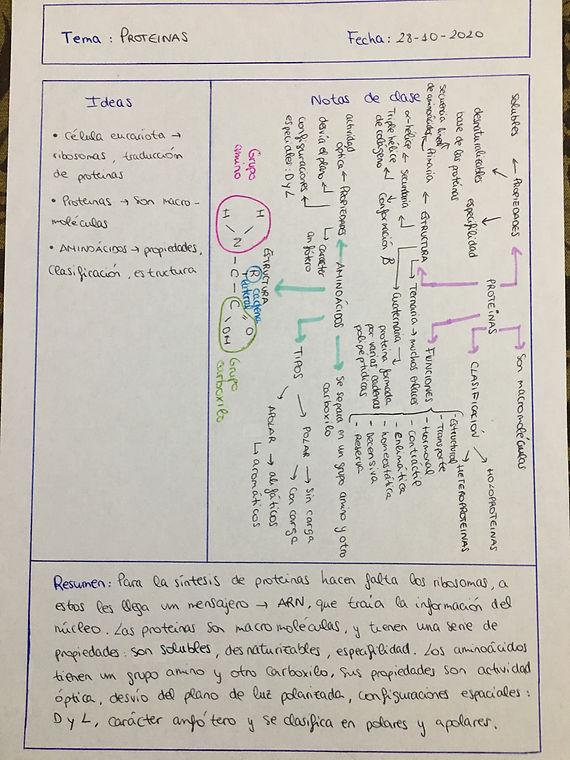 Tema : PROTEINAS
Fecha: 28-10-2020
Ideas
• Célula eucariota →
ribosomas, traducción
de proteínas
• Proteínas → Son macro-
moléculas
• AMINOÁCIDOS → propiedades,
clasificación, estructura
Notas de clase
PROTEINAS
Son macromoléculas
PROPIEDADES
solubles
desnaturalizables
especifilidad
base de las proteínas
CLASIFICACIÓN
HOLOPROTEINAS
HETEROPROTEINAS
FUNCIONES
- Estructural
- Transporte
- Hormonal
- Contráctil
- enzimática
- homeostática
- Decensiva
- Reserva
ESTRUCTURA
→ Primaria →
secuencia lineal
de aminoácidos
→ Secundaria →
α-hélice
Triple hélice
de colágeno
Conformación β
→ Ternaria → muchos enlaces
→ Cuaternaria →
proteína formada
por varias cadenas
polipeptídicas
AMINOÁCIDOS
Se separa en un grupo amino y otro
carboxilo
PROPIEDADES
actividad
óptica
desvía el plano
configuraciones
especiales: D y L
carácter
anfótero
TIPOS
POLAR → Sin carga
→ Con carga
APOLAR → alifáticos
↳ aromáticos
ESTRUCTURA
R
cadena
lateral
H
H
N - C - C
O
OH
Grupo
amino
Grupo
carboxilo
Resumen: Para la síntesis de proteínas hacen falta los ribosomas, a
estos les llega un mensajero → ARN, que traía la información del
núcleo. Las proteínas son macromoléculas, y tienen una serie de
propiedades: son solubles, desnaturizables, especifilidad. Los aminoácidos
tienen un grupo amino y otro carboxilo, sus propiedades son actividad
óptica, desvío del plano de luz polarizada, configuraciones espaciales:
D y L, carácter anfótero y se clasifica en polares y apolares.